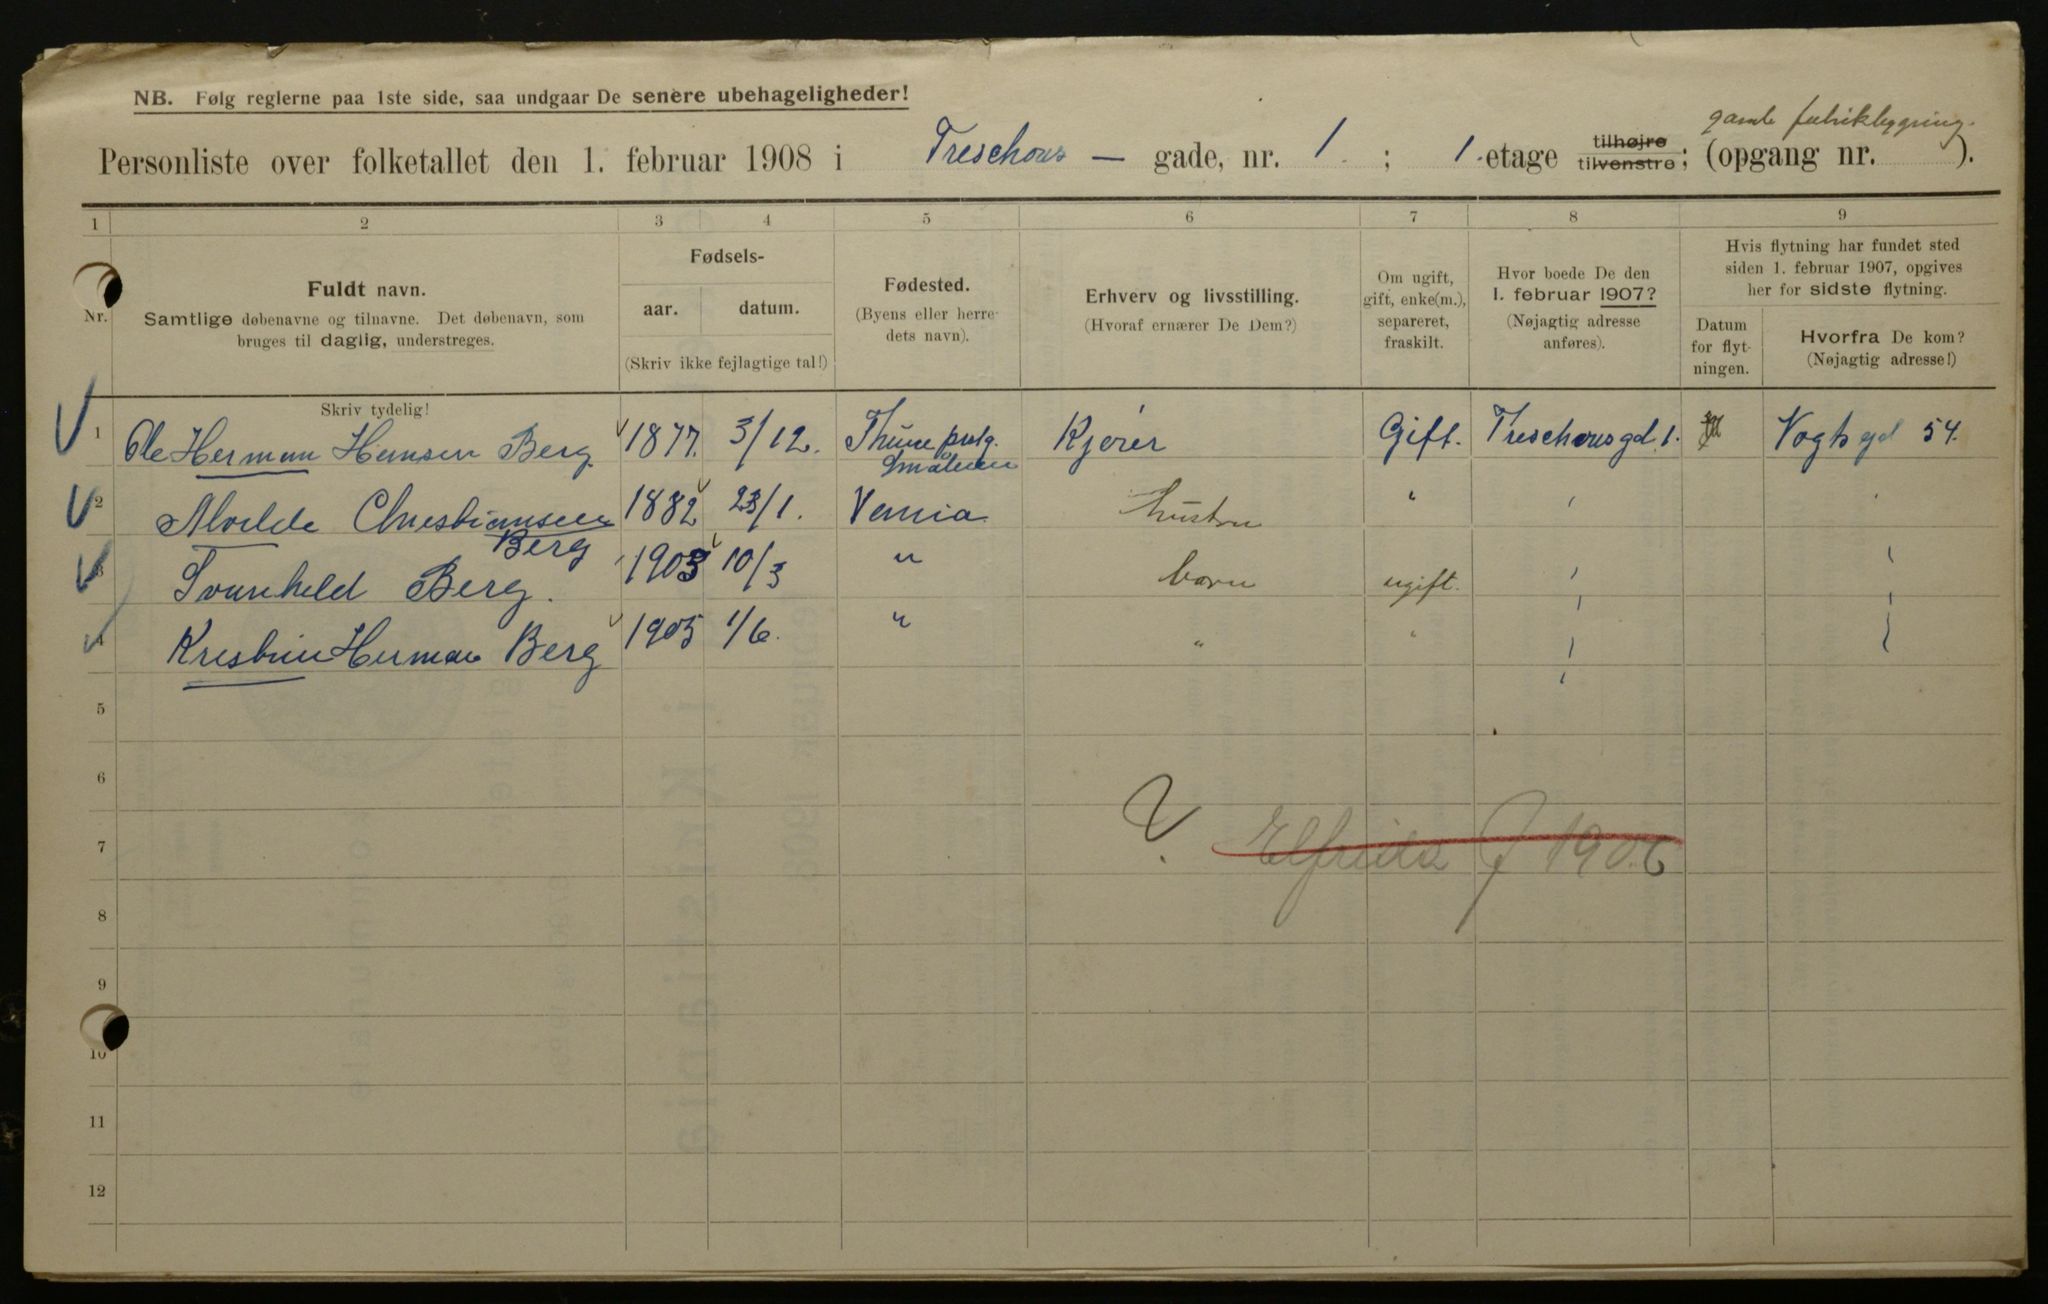 NB. Følg reglerne paa 1ste side, saa undgaar De senere ubehageligheder!
gamle fabrikbygning.
Personliste over folketallet den 1. februar 1908 i Treschous — gade, nr. 1. ; 1. etage tilhøjre tilvenstre; (opgang nr. ).
1 2 3 4 5 6 7 8 9
Nr.
Fuldt navn.
Samtlige døbenavne og tilnavne. Det døbenavn, som
bruges til daglig, understreges.
Fødsels-
aar. datum.
(Skriv ikke fejlagtige tal!)
Fødested.
(Byens eller herre-
dets navn).
Erhverv og livsstilling.
(Hvoraf ernærer De Dem?)
Om ugift,
gift, enke(m.),
separeret,
fraskilt.
Hvor boede De den
1. februar 1907?
(Nøjagtig adresse
anføres).
Hvis flytning har fundet sted
siden 1. februar 1907, opgives
her for sidste flytning.
Datum
for flyt-
ningen.
Hvorfra De kom?
(Nøjagtig adresse!)
Skriv tydelig!
1 Ole Herman Hansen Berg. 1877. 3/12. Kjører Gift. Treschousgd. 1. Vogtsgd 54.
Smålenen
2 Alvilde Christiansen 1882 23/1. hustru "
Berg
3 Berg. 1903 10/3 " barn ugift.
4 Herman Berg 1905 1/6. " " "
5
6
7 Elfrida 1906
8
9
10
11
12